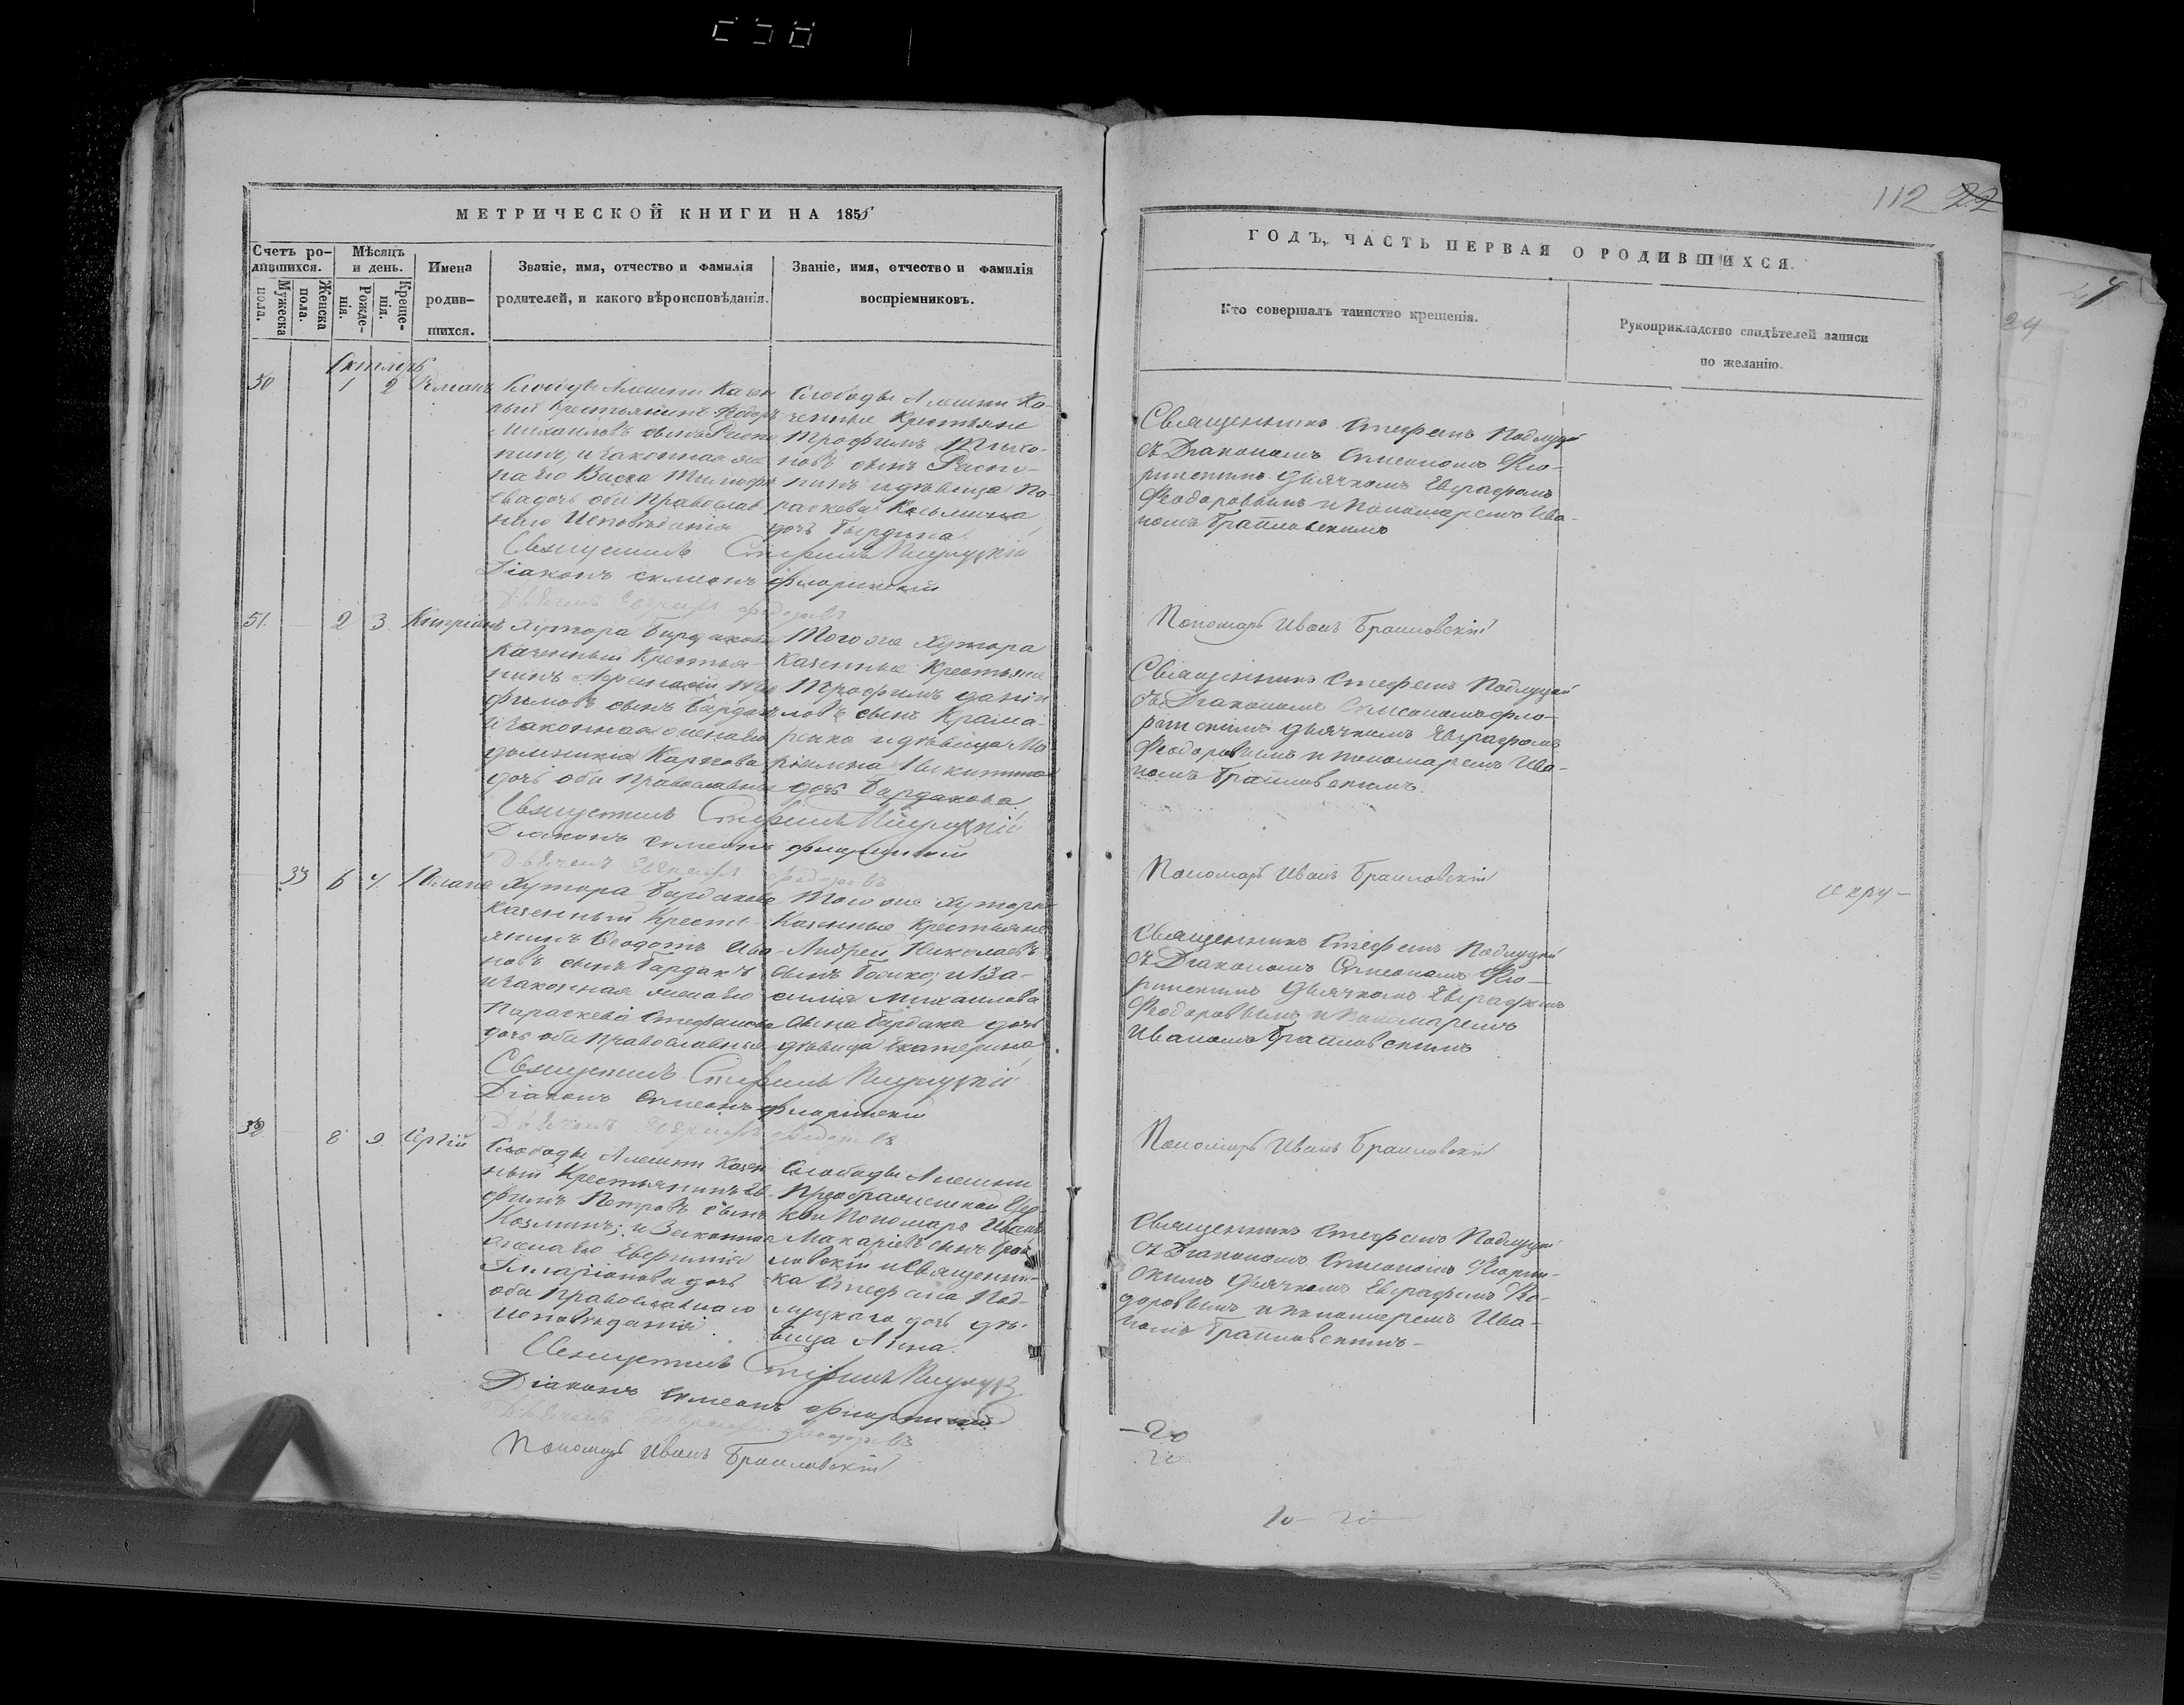 МЕТРИЧЕСКОЙ КНИГИ НА 1855
Счетъ ро-
дившихся.
Мужеска
пола.
Женска
пола.
Мѣсяцъ
и день.
Рожде-
нія.
Креще-
нія.
Имена
родив-
шихся.
Званіе, имя, отчество и фамилія
родителей, и какого вѣроисповѣданія.
Званіе, имя, отчество и фамилія
воспріемниковъ.
Октябрь
50 1 2 Романъ
Слободы Алешни Казен
ный Крестьянинъ Ѳедоръ
Михаиловъ сынъ
и законная же
на его Васса
оба Православ
наго Исповѣданія
Слободы Алешни Ка-
зенные Крестьяне
Трофимъ
новъ сынъ
и дѣвица Па-
раскева Козьмина
дочь
Священникъ Стефанъ Подлуцкій
Діаконъ Симеонъ Флоринскій
Дьячекъ Евграфъ Ѳедоровъ
51. 2 3. Кипріанъ
Хутора Бардакова
Казенный Крестья-
нинъ
сынъ Бардакъ
и законная жена его
Домникія Карпова
дочь оба Православные
Того же Хутора
Казенные Крестьяне
Трофимъ Даніи
ловъ сынъ Крама-
ренко и дѣвица Ма
дочь Бардакова
Священникъ Стефанъ Подлуцкій
Діаконъ Симеонъ Флоринскій
Дьячекъ Евграфъ Ѳедоровъ
33 6 7.
Хутора Бардакова
Казенный Кресть-
янинъ Ѳеодотъ Ива-
новъ сынъ Бардакъ
и законная жена его
Параскева Стефанова
дочь оба Православные
Того же Хутора
Казенные Крестьяне
Андрей Николаевъ
сынъ Бойко, и Ва-
силія Михаилова
сына Бардака дочь
дѣвица Екатерина
Священникъ Стефанъ Подлуцкій
Діаконъ Симеонъ Флоринскій
Дьячекъ Евграфъ Ѳедоровъ
8 9. Сергій
Слободы Алешни Казен
ный Крестьянинъ
Петровъ сынъ
Козминъ; и Законная
жена его Евфимія
Илларіонова дочь
оба Православнаго
Исповѣданія.
Слободы Алешни
Преображенской Цер-
кви Пономарь Иванъ
Макаріевъ сынъ Браи
ловскій и Священни-
ка Стефана Под-
луцкаго дочь дѣ-
вица Анна.
Священникъ Стефанъ Подлуцкій
Діаконъ Симеонъ Флоринскій
Дьячекъ Евграфъ Ѳеодоровъ
Пономарь Иванъ Браиловскій
112 22
ГОДЪ, ЧАСТЬ ПЕРВАЯ О РОДИВШИХСЯ.
Кто совершалъ таинство крещенія.
Рукоприкладство свидѣтелей записи
по желанію.
Священникъ Стефанъ Подлуцкій
съ Діакономъ Симеономъ Фло-
ринскимъ Дьячкомъ Евграфомъ
Феодоровымъ и Пономаремъ Ива-
номъ Браиловскимъ
Пономарь Иванъ Браиловскій
Священникъ Стефанъ Подлуцкій
съ Діакономъ Симеономъ Фло-
ринскимъ Дьячкомъ Евграфомъ
Феодоровымъ и Пономаремъ Ива-
номъ Браиловскимъ.
Пономарь Иванъ Браиловскій
Священникъ Стефанъ Подлуцкій
съ Діакономъ Симеономъ Фло-
ринскимъ Дьячкомъ Евграфомъ
Феодоровымъ и Пономаремъ
Иваномъ Браиловскимъ
Пономарь Иванъ Браиловскій
Священникъ Стефанъ Подлуцкій
съ Діакономъ Симеономъ Флорин-
скимъ Дьячкомъ Евграфомъ Фео-
доровымъ и Пономаремъ Ива-
номъ Браиловскимъ-
-20
20
24